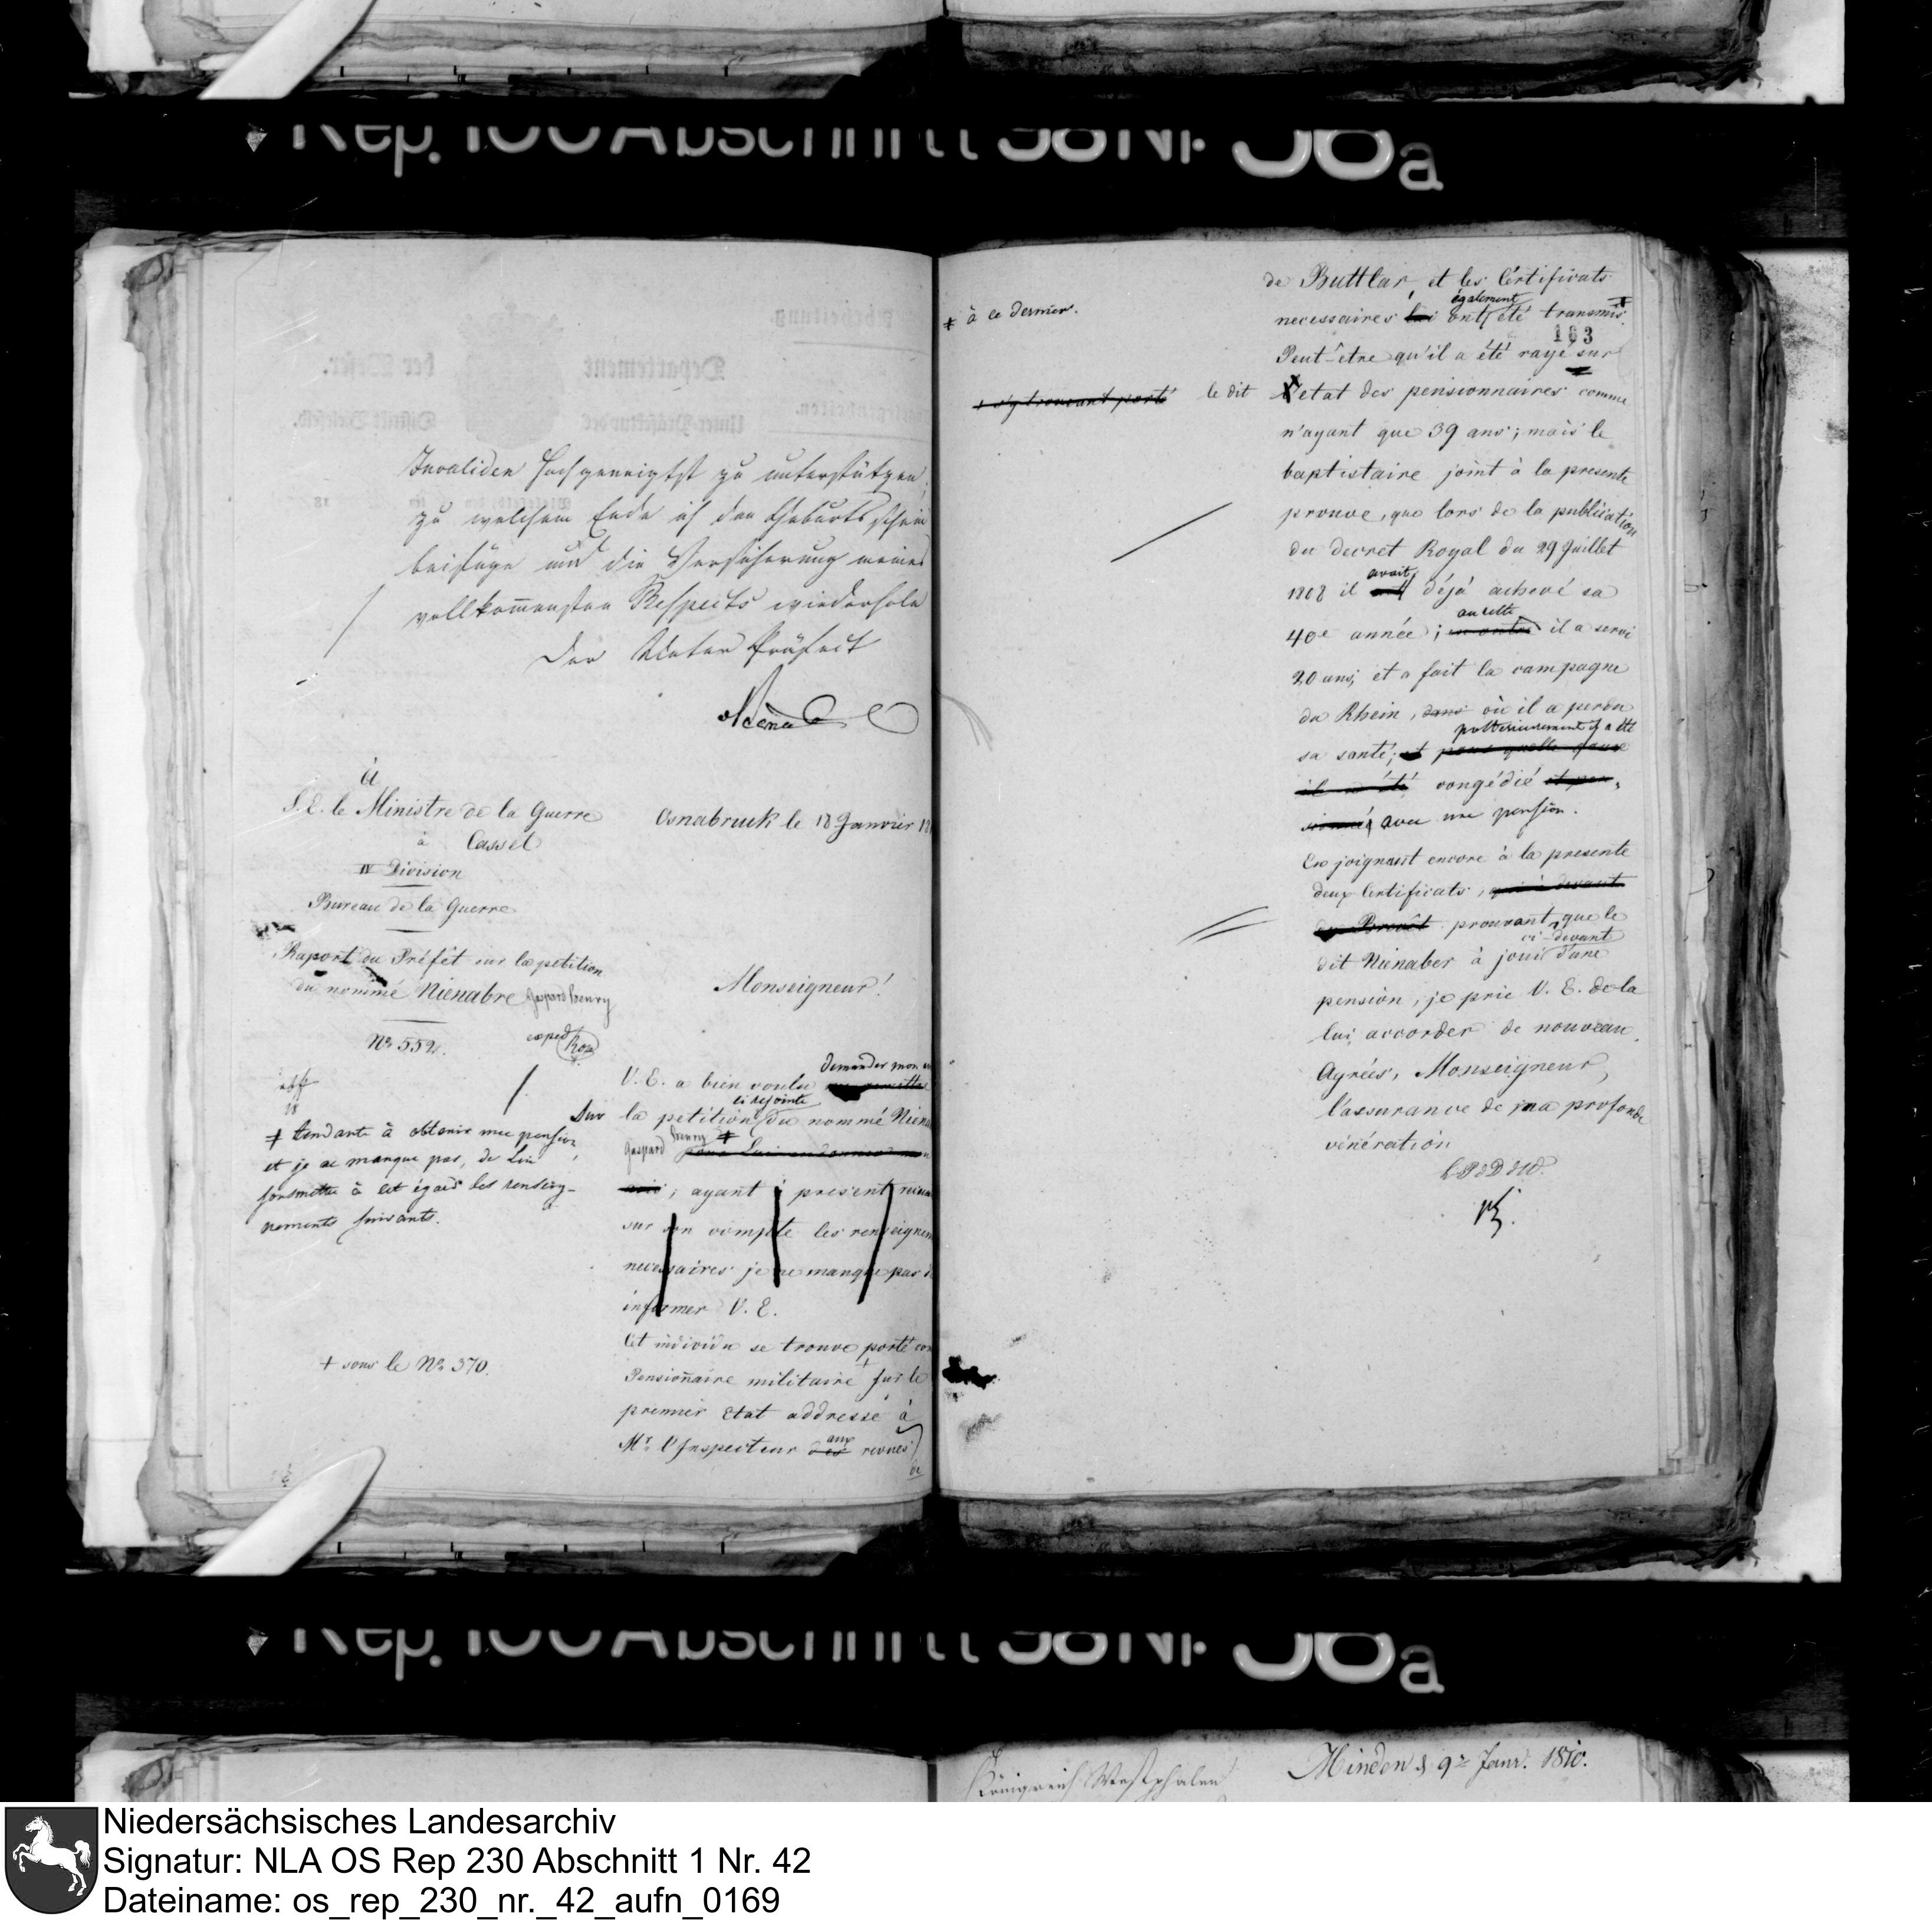 Rep. 100 Abschnitt 58 Nr. 38a
Invaliden hochgeneigtst zu unterstützen,
zu welchem Ende ich den Geburtsschein
beifüge und die Versicherung meines
vollkommensten Respects wiederhole
Der Unter Präfect
à
S. E. le Ministre de la Guerre
à Cassel
IV Division
Bureau de la Guerre
Raport du Préfêt sur la petition
du nommé Nienabre Gaspard henry
No 552.
exped
‡ tendante à obtenir une pension
et je ne manque pas, de Lui
soumettre à cet égard les renseig-
nements suivants.
+ sous le No 370.
Osnabruck le 18 Janvier 18
Monseigneur!
demander mon
V. E. a bien voulu
ci rejointe
Sur la petition du nommé Niena
Gaspard henry ‡ pour Lui en donner mon
avis; ayant à present reçu
sur son compte les renseignem
necessaires je ne manque pas d
informer V. E.
Cet individu se trouve porté com
Pensionnaire militaire + sur le
premier Etat addressé à
aux
Mr. l'Inspecteur des revues
de
‡ à ce dernier.
+ s'y trouvant porté
de Buttlar, et les Certificats
également
necessaires lui ont été transmis ‡
163
Peut-être qu'il a été rayé sur
le dit l'etat des pensionnaires comme
n'ayant que 39 ans; mais le
baptistaire joint à la presente
prouve, que lors de la publication
du decret Royal du 29 Juillet
avait
1808 il déjà achevé sa
au reste
40e année; en outre il a servi
20 ans, et a fait la campagne
du Rhein, dans où il a perdu
posterieurement il a été
sa santé; et pour quelle cause
il a été congédié et pen-
sionné avec une pension.
En joignant encore à la presente
deux Certificats,
prouvant, que le
ci-devant
dit Nienaber à joui d'une
pension, je prie V. E. de la
lui accorder de nouveau.
Agréés, Monseigneur,
l'assurance de ma profonde
vénération
L P d D d W.
Königreich Westphalen
Minden d 9n Janr. 1810.
Niedersächsisches Landesarchiv
Signatur: NLA OS Rep 230 Abschnitt 1 Nr. 42
Dateiname: os_rep_230_nr._42_aufn_0169